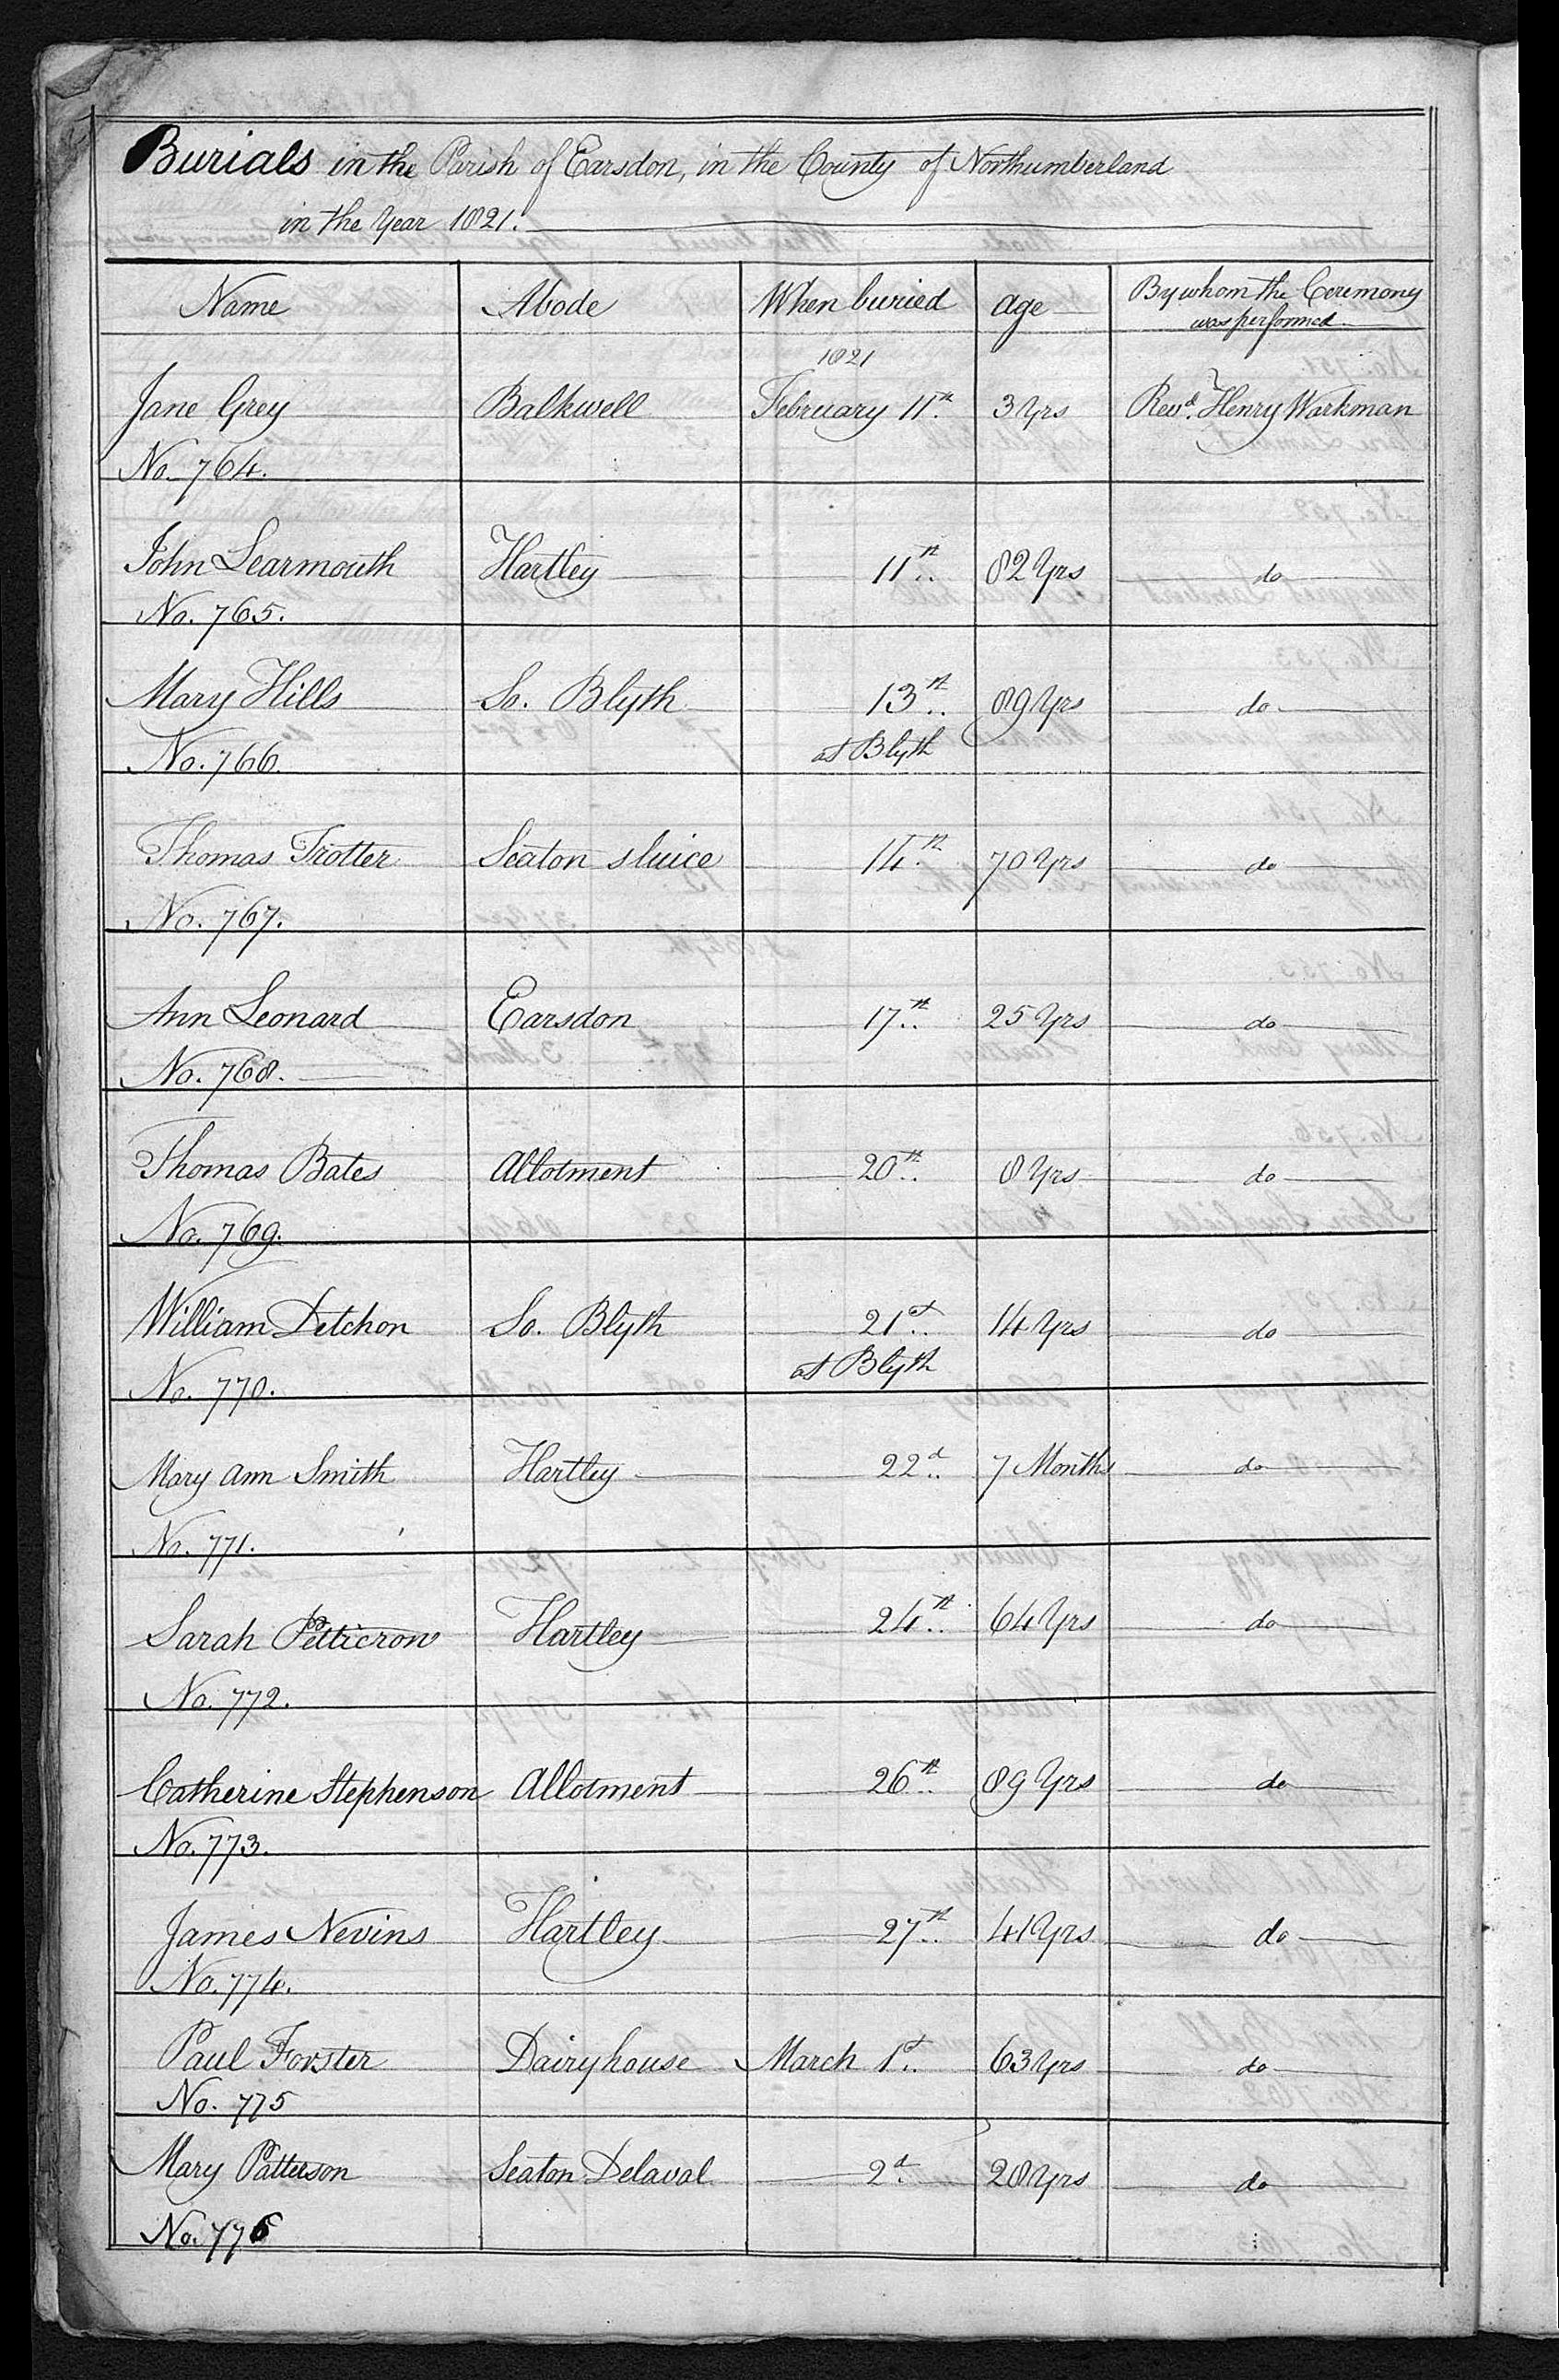 Burials in the Parish of Earsdon, in the County of Northumberland
in the Year 1821.
Name Abode When buried Age By whom the Ceremony
was performed
1821
Jane Grey Balkwell February 11th. 3 Yrs Revd. Henry Warkman
No. 764.
John Learmouth Hartley 11th.. 82 Yrs do
No. 765.
Mary Hills So. Blyth 13th.. 89 Yrs do
No. 766. at Blyth
Thomas Trotter Seaton Sluice 14th. 70 Yrs do
No. 767.
Ann Leonard Earsdon 17th.. 25 Yrs do
No. 768.
Thomas Bates Allotment 20th.. 8 Yrs do
No. 769.
William Detchon So. Blyth 21st.. 14 Yrs do
No. 770. at Blyth
Mary Ann Smith Hartley 22d.. 7 Months do
No. 771.
Sarah Petticrow Hartley 24th.. 64 Yrs do
No. 772.
Catherine Stephenson Allotment 26th.. 89 Yrs do
No. 773.
James Nevins Hartley 27th.. 41 Yrs do
No. 774.
Paul Forster Dairyhouse March 1st.. 63 Yrs do
No. 775
Mary Patterson Seaton Delaval 2d. 28 Yrs do
No. 776